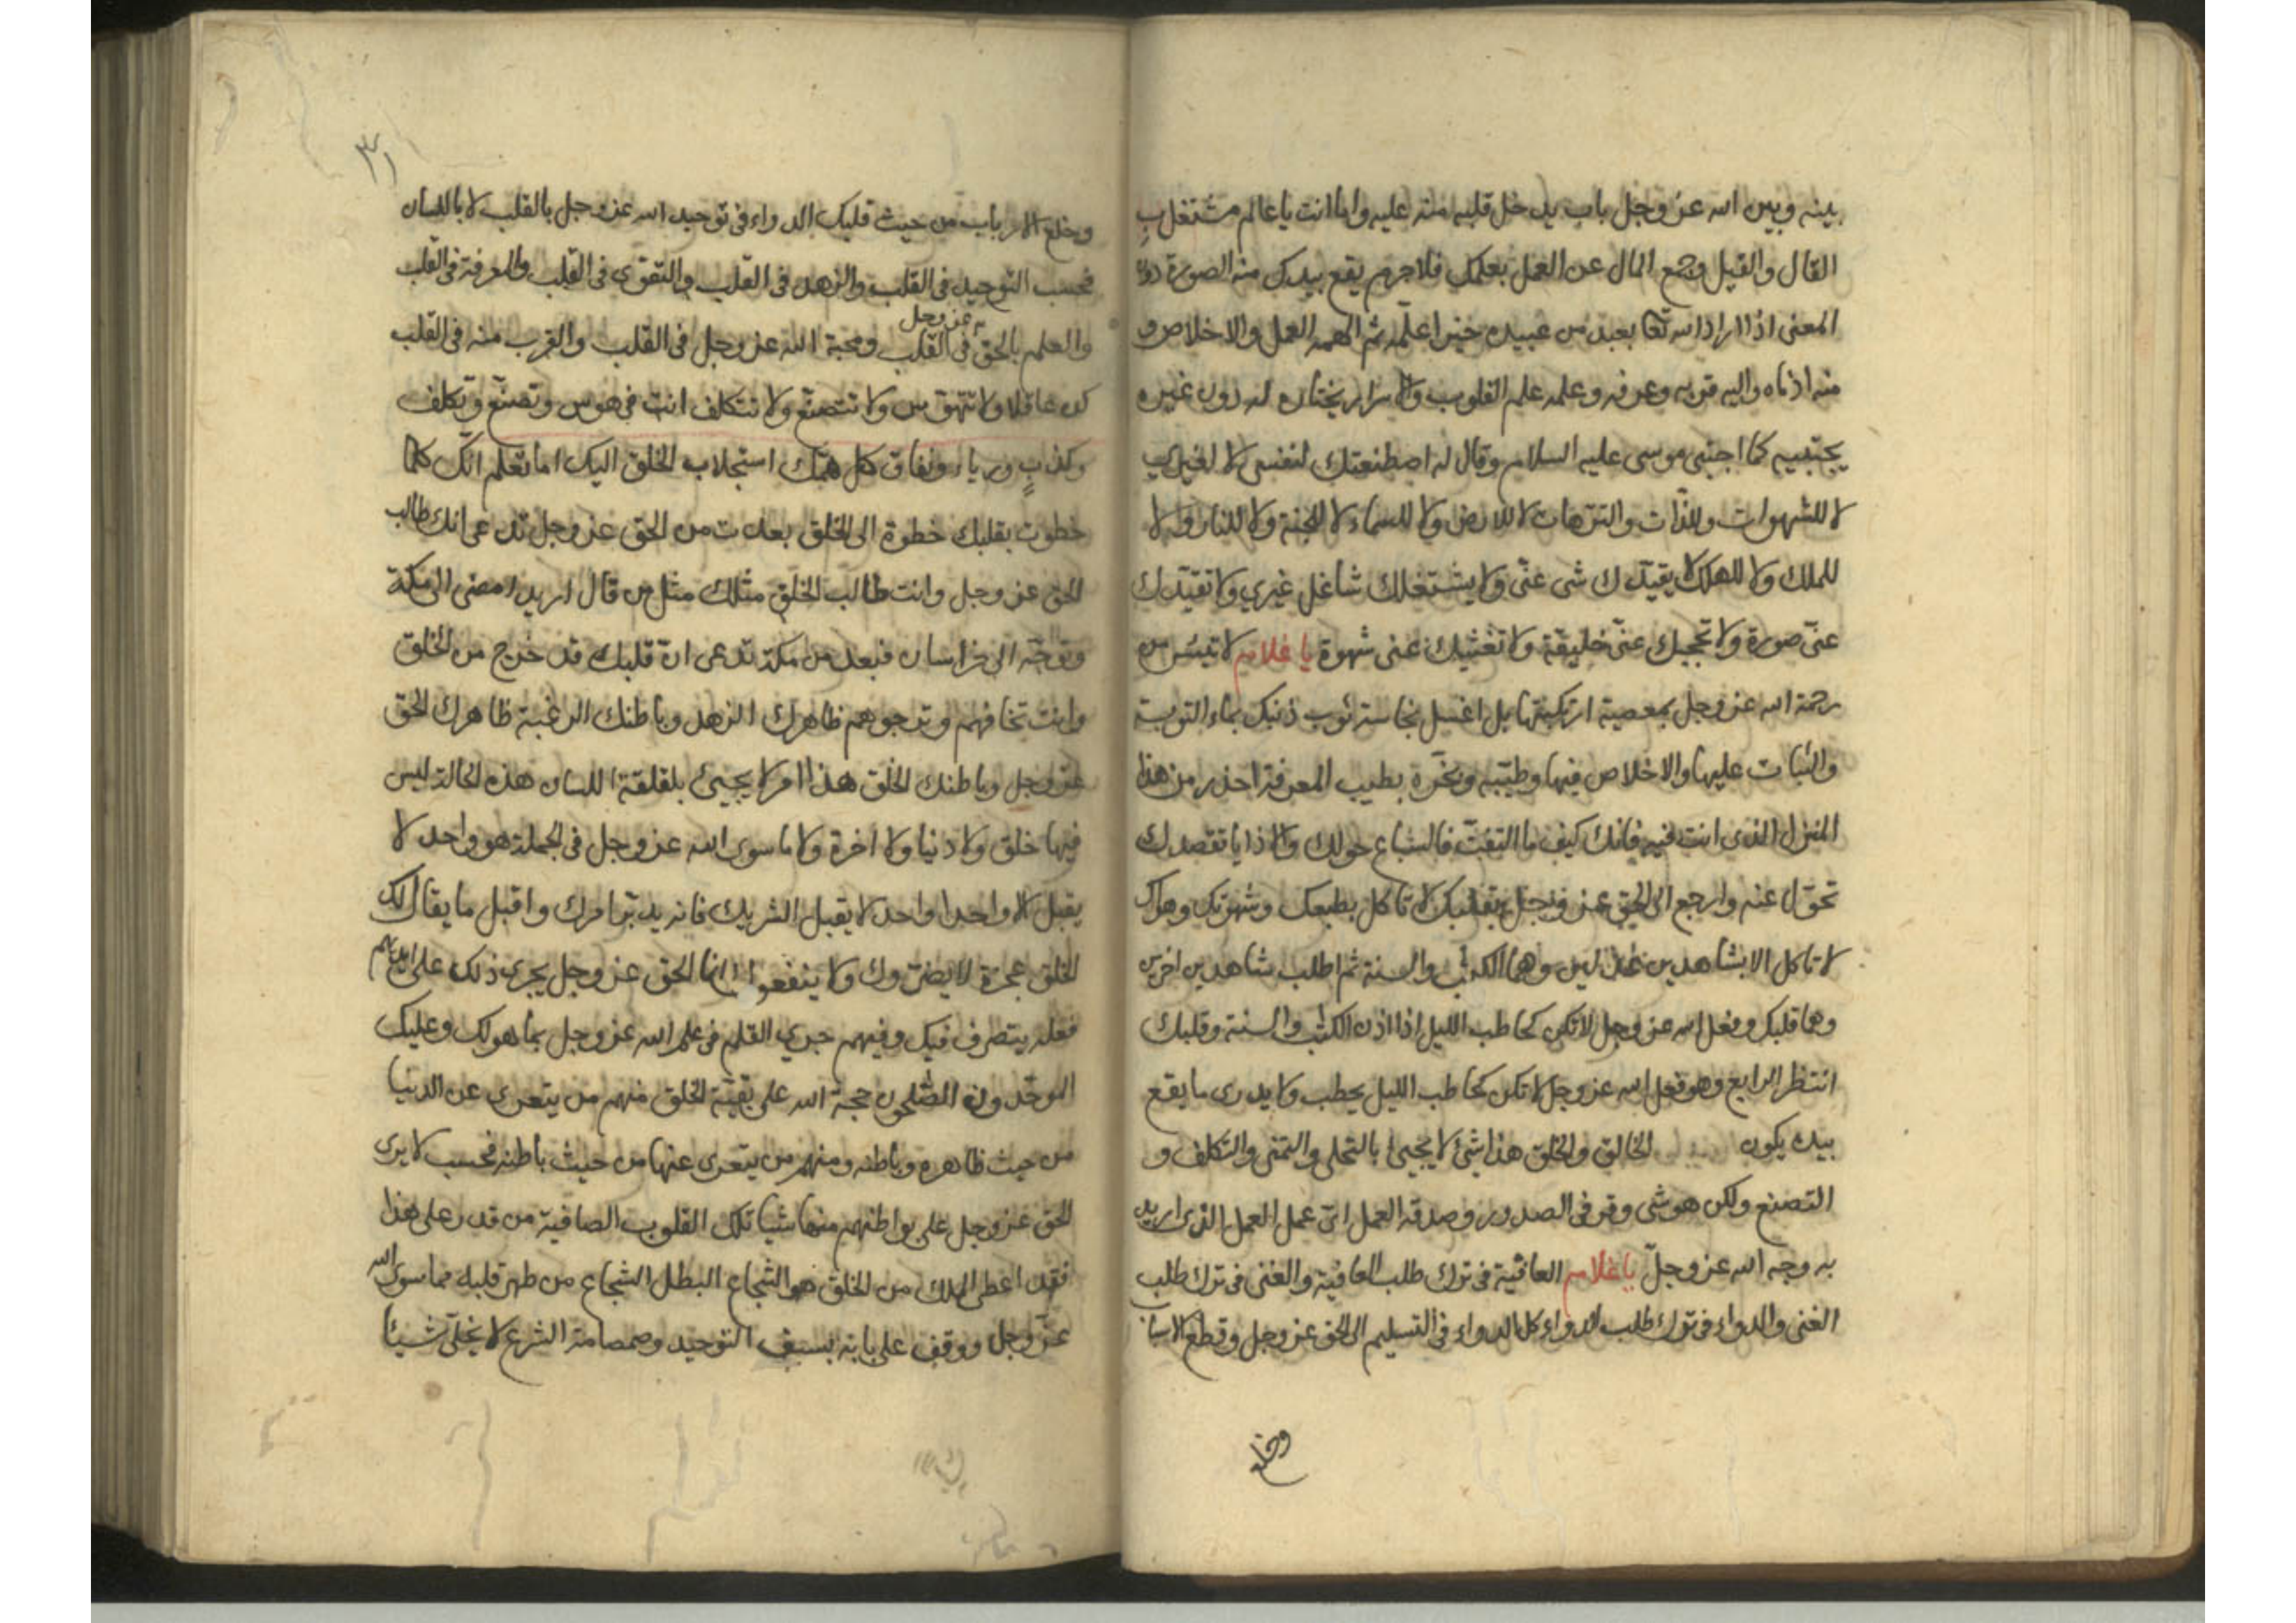 بينه وبين الله عز وجل باب يدخل قلبه منه عليه واما انت يا عالم مشتغل ب
القال والقيل وجمع المال عن العمل بعلمك فلا جرم يقع بيدك منه الصورة دون
المعنى اذا اراد الله تعا بعبد من عبيده خيرا علمه ثم الهمه العمل والاخلاص و
منه ادناه واليه قربه وعرفه وعلمه علم القلوب والاسرار يختاره له دون غيره
يجتبيه كما اجتبى موسى عليه السلام وقال له اصطنعتك لنفسى لا لغيري
لا للشهوات وللذات والترهات لا للارض ولا للسماء لا للجنة ولا للنار ولا لا
للملك ولا للهلك لا يقيدك شى عنى ولا يشتغلك شاغل غيري ولا تقيدك
عنى صورة ولا تحجبك عنى خليقة ولا تغنيك عنى شهوة يا غلام لا تيئس من
رحمة الله عز وجل بمعصية ارتكبتها بل اغسل نجاسة ثوب ذنبك بماء التوبة
والثبات عليها والاخلاص فيها وطيبه وبخره بطيب المعرفة احذر من هذا
المنزل الذى انت فيه فانك كيف ما التفت فالسباع حولك والاذايا تقصدك
تحول عنه وارجع الى الحق عز وجل بقلبك لا تاكل بطبعك وشهوتك وهواك
لا تاكل الا بشاهدين عدلين وهما الكتب والسنة ثم اطلب شاهدين اخرين
وهما قلبك وفعل الله عز وجل لا تكن كحاطب الليل اذا اذن الكتب والسنة وقلبك
انتظر الرابع وهو فعل الله عز وجل لا تكن كحاطب الليل يحطب ولا يدرى ما يقع
بيده يكون الخالق والخلق هذا شئ لا يجيئ بالتحلى والتمنى والتكلف و
التصنع ولكن هو شى وقر فى الصدور وصدقه العمل اى عمل العمل الذى اريد
به وجه الله عز وجل يا غلام العافية فى ترك طلب العافية والغنى فى ترك طلب
الغنى والدواء فى ترك طلب الدواء كل الدواء فى التسليم الى الحق عز وجل وقطع الاسباب
وخلع
٣١
وخلع الارباب من حيث قلبك الدواء فى توحيد الله عز وجل بالقلب لا باللسان
فحسب التوحيد فى القلب والزهد فى القلب والتقوى فى القلب والمعرفة فى القلب
والعلم بالحق عز وجل فى القلب ومحبة الله عز وجل فى القلب والقرب منه فى القلب
كن عاقلا ولا تتهوس ولا تتصنع ولا تتكلف انت فى هوس وتصنع وتكلف
وكذب ورياء ونفاق كل همك استجلاب الخلق اليك اما تعلم انك كلما
خطوت بقلبك خطوة الى الخلق بعدت من الحق عز وجل تدعى انك طالب
الحق عز وجل وانت طالب الخلق مثلك مثل من قال اريد امضى الى مكة
وتوجه الى خراسان فبعد من مكة تدعى ان قلبك قد خرج من الخلق
وانت تخافهم وترجوهم ظاهرك الزهد وباطنك الرغبة ظاهرك الحق
عز وجل وباطنك الخلق هذا امر لا يجيئ بلقلقة اللسان هذه الحالة ليس
فيها خلق ولا دنيا ولا اخرة ولا ما سوى الله عز وجل فى الجملة هو واحد لا
يقبل الا واحدا واحد لا يقبل الشريك فانه يدبر امرك واقبل ما يقال لك
الخلق عجزة لا يضروك ولا ينفعوا انما الحق عز وجل يجرى ذلك على ايديهم
فعله يتصرف فيك وفيهم جرى القلم فى علم الله عز وجل بما هو لك وعليك
الموحدون المصلحون حجة الله على بقية الخلق منهم من يتعرى عن الدنيا
من حيث ظاهره وباطنه ومنهم من يتعرى عنها من حيث باطنه فحسب لا يرى
الحق عز وجل على بواطنهم منها شيا تلك القلوب الصافية من قدر على هذا
فقد اعطى الملك من الخلق هو الشجاع البطل الشجاع من طهر قلبه مما سوى الله
عز وجل ووقف على بابه بسيف التوحيد وصمصامة الشرع لا يخلى شيئا